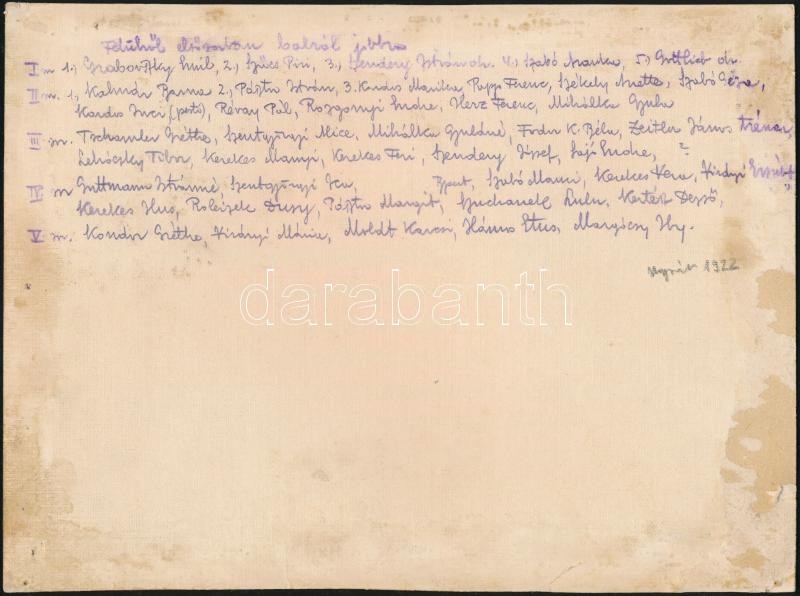 Felülről elősorban balról jobbra
I m 1., Grabovszky Emil, 2., Szücs Piri, 3., Szendery Istvánch. 4., Szabó Aranka, 5., Gottlieb dr.
II m. 1, Kalmár Panna 2., Pásztu István, 3. Kardos Marika, Papp Ferenc, Székely Anette, Szabó Géza,
Kardos Inci (pesti), Révay Pál, Rozgonyi Endre, Herz Ferenc, Mihálka Gyula
III m. Tschamler Gréthe, Szentgyörgyi Alice, Mihálka Gyuláné, Fodor K. Béla, Zeitler János tréner,
Lehóczky Tibor, Kerekes Manyi, Kerekes Feri, Szendery József, Sajó Endre, ?
IV m Guttmann Istvánné, Szentgyörgyi Ica, Szabó Manci, Kerekes Vera, Virányi Erzsébet,
Kerekes Ilus, Policzek Dusy, Pásztu Margit, Suchanek Lulu, Kertész Dezső,
V m. Kondor Gréthe, Virányi Mária, Moldt Karcsi, Hámos Etus, Margóczy Iby.
Nyár 1922
darabanth